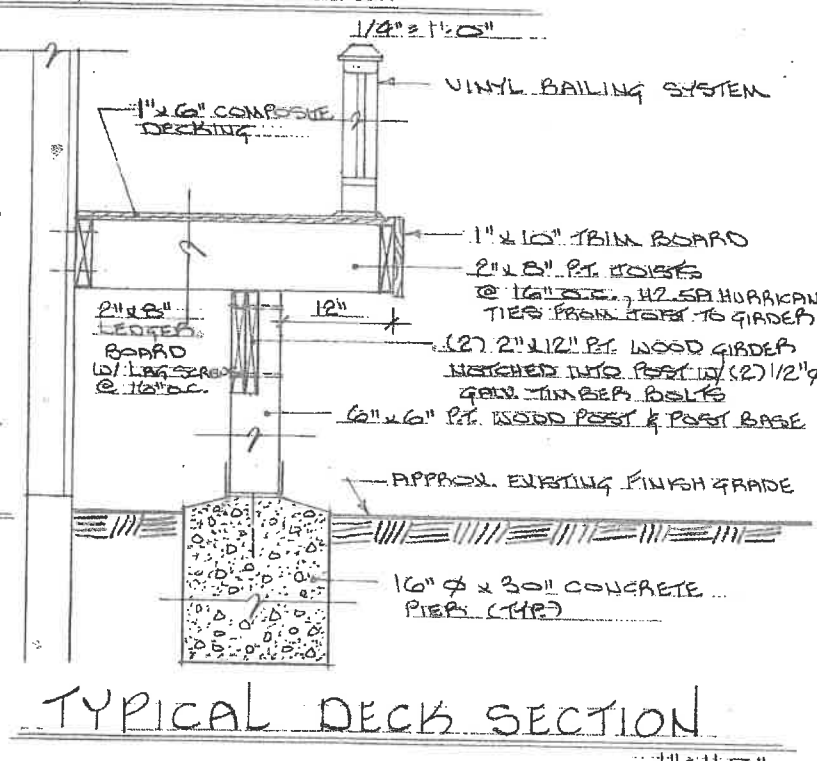 1/4" = 1'-0"
VINYL RAILING SYSTEM
1" x 6" COMPOSITE
DECKING
1" x 10" TRIM BOARD
2" x 8" P.T. JOISTS
@ 16" O.C., H2.5A HURRICAN
TIES FROM JOIST TO GIRDER
12"
2" x 8"
LEDGER
BOARD
W/ LAG SCREWS
@ 16" O.C.
(2) 2" x 12" P.T. WOOD GIRDER
NOTCHED INTO POST W/ (2) 1/2" Ø
GALV. TIMBER BOLTS
6" x 6" P.T. WOOD POST & POST BASE
APPROX. EXISTING FINISH GRADE
16" Ø x 30" CONCRETE
PIER (TYP.)
TYPICAL DECK SECTION